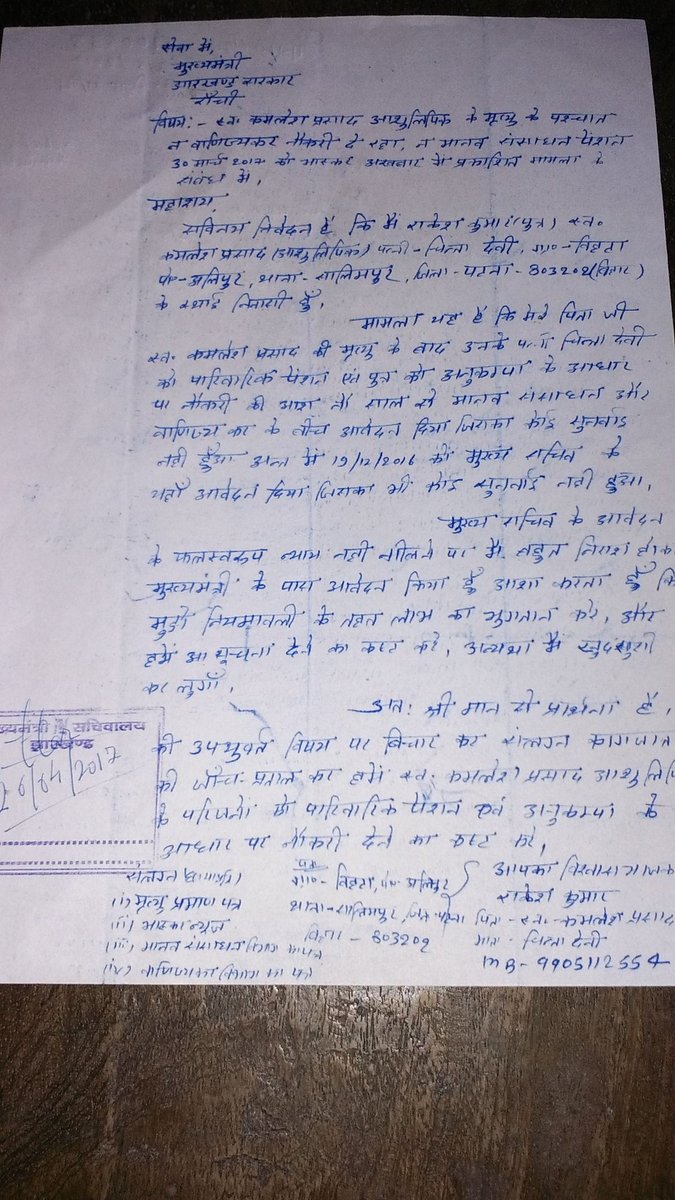 सेवा में,
मुख्यमंत्री
झारखण्ड सरकार
राँची
विषय:- स्व० कमलेश प्रसाद आशुलिपिक के मृत्यु के पश्चात
न वाणिज्यकर नौकरी दे रहा, न मानव संसाधन पेंशन
30 मार्च 2017 को भास्कर अखबार में प्रकाशित मामला के
संबंध में,
महाशय,
सविनय निवेदन है कि मैं राकेश कुमार (पुत्र) स्व०
कमलेश प्रसाद (आशुलिपिक) पत्नी - चिन्ता देवी, ग्रा०- विहटा
पो०- अलिपुर, थाना - सालिमपुर, जिला - पटना - 803202 (बिहार)
के स्थाई निवासी हूँ,
मामला यह है कि मेरे पिता जी
स्व० कमलेश प्रसाद की मृत्यु के बाद उनके पत्नी चिन्ता देवी
को पारिवारिक पेंशन एवं पुत्र को अनुकम्पा के आधार
पर नौकरी की आश नौ साल से मानव संसाधन और
वाणिज्य कर के बीच आवेदन दिया जिसका कोई सुनवाई
नहीं हुँआ अन्त में 19/12/2016 को मुख्य सचिव के
यहाँ आवेदन दिया जिसका भी कोई सुनवाई नहीं हुआ,
मुख्य सचिव के आवेदन
के फलस्वरूप न्याय नहीं मीलने पर मैं बहुत निराश होक
मुख्यमंत्री के पास आवेदन किया हूँ आशा करता हूँ कि
मुझे नियमावली के तहत लाभ का भुगतान करे, और
हमें सूचना देने का कष्ट करे, अन्यथा मैं खुदखुशी
कर लुगाँ,
अत: श्री मान से प्रार्थना है,
की उपयुक्त विषय पर विचार कर संलग्न कागजात
की जाँच पड़ताल कर हमें स्व० कमलेश प्रसाद आशुलिपि
के परिजनों को पारिवारिक पेंशन एवं अनुकम्पा के
आधार पर नौकरी देने का कष्ट करे,
मुख्यमंत्री सचिवालय
झारखण्ड
26/04/2017
संलग्न
(i) मृत्यु प्रमाण पत्र
(ii) भास्कर न्यूज
(iii) मानव संसाधन विभाग का पत्र
(iv) वाणिज्यकर विभाग का पत्र
ग्रा०- विहटा, पो०- अलिपुर
थाना - सालिमपुर, जिला - पटना
बिहार - 803202
आपका विश्वासभाजक
राकेश कुमार
पिता - स्व० कमलेश प्रसाद
माता - चिन्ता देवी
MB - 9905112554